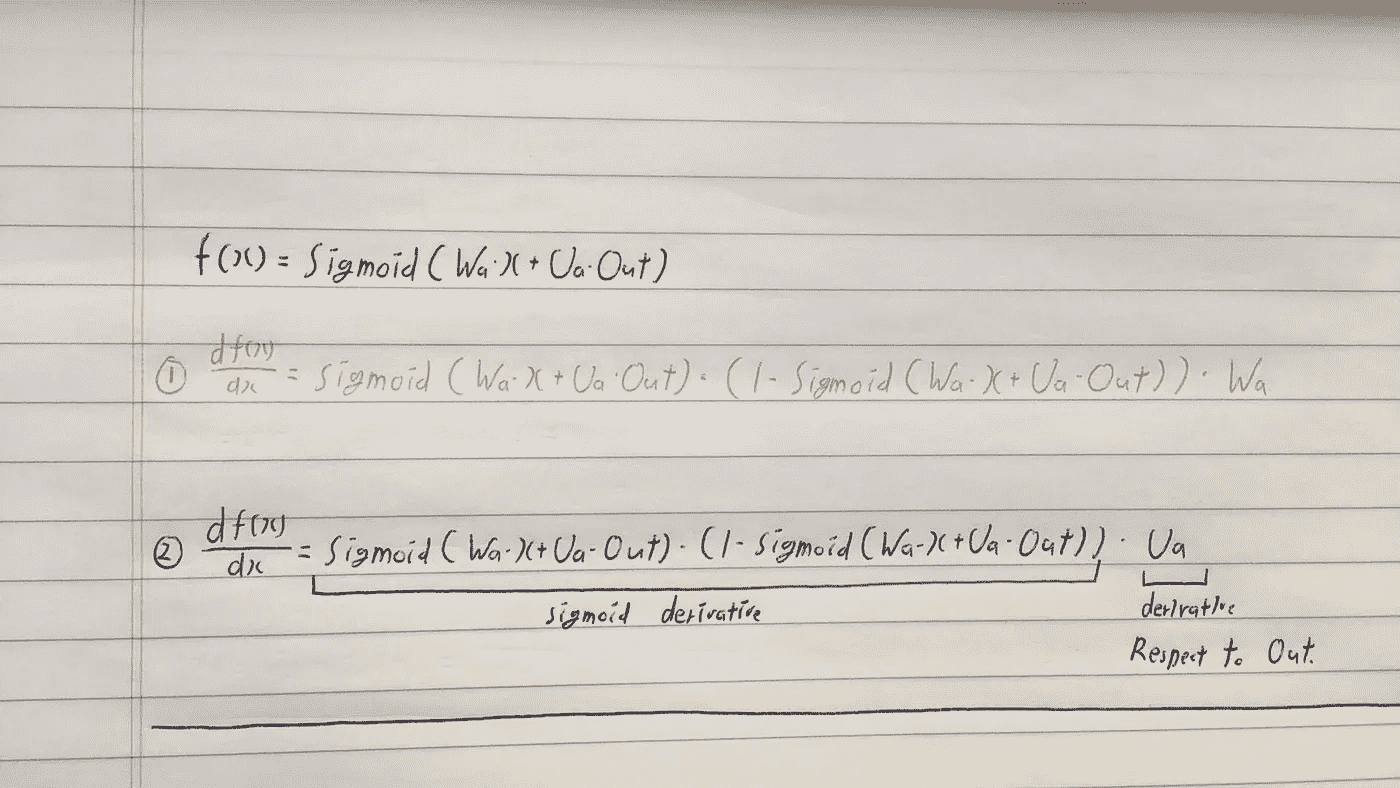 f(x) = Sigmoid ( Wa·x + Ua·Out )
① df(x)/dx = Sigmoid ( Wa·x + Ua·Out ) · ( 1 - Sigmoid ( Wa·x + Ua·Out ) ) · Wa
② df(x)/dx = Sigmoid ( Wa·x + Ua·Out ) · ( 1 - Sigmoid ( Wa·x + Ua·Out ) ) · Ua
sigmoid derivative derivative
Respect to Out.